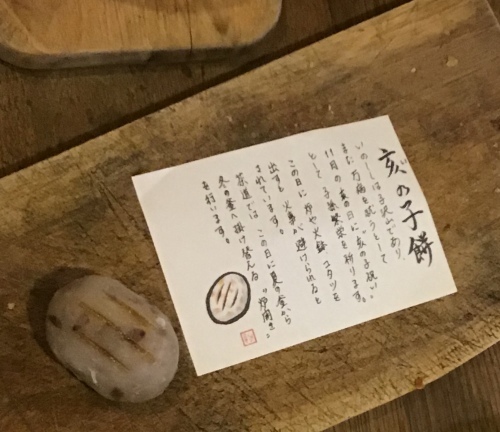 亥の子餅
いのししは子沢山であり、
また、万病を祓うとして
11月の亥の日に"亥の子祝い"
として子孫繁栄を祈ります。
この日に炉や火鉢、コタツを
出すと、火事が避けられると
されています。
茶道では、この日に夏の釜から
冬の釜へ掛け替える"炉開き"
を行います。